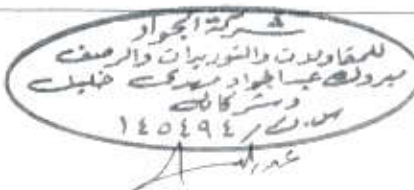 شركة الجواد
للمقاولات والتوريدات والرصف
مبروك عبدالجواد مهدى خليل
وشركاه
س.ت/ ١٤٥٤٩٤